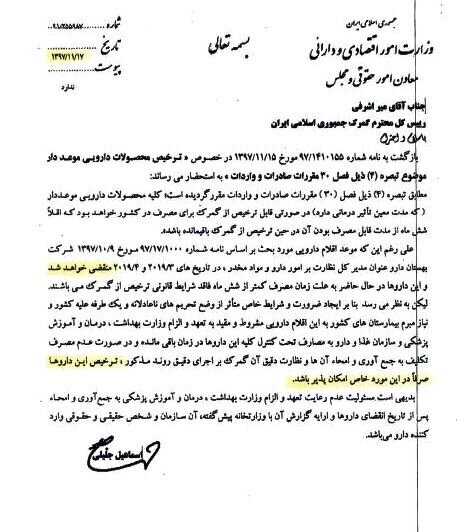 جمهوری اسلامی ایران
وزارت امور اقتصادی و دارائی
معاون امور حقوقی و مجلس
بسمه تعالی
شماره ۹۱/۲۵۵۹۸۷
تاریخ
۱۳۹۷/۱۱/۱۷
پیوست
ندارد
جناب آقای میر اشرفی
رییس کل محترم گمرک جمهوری اسلامی ایران
با سلام و احترام
بازگشت به نامه شماره ۹۷/۱۴۱۰۱۵۵ مورخ ۱۳۹۷/۱۱/۱۵ در خصوص « ترخیص محصولات دارویی موعد دار
موضوع تبصره (۴) ذیل فصل ۳۰ مقررات صادرات و واردات » به استحضار می رساند:
مطابق تبصره (۴) ذیل فصل (۳۰) مقررات صادرات و واردات مقرر گردیده است:« کلیه محصولات دارویی موعددار
( که مدت معین تأثیر درمانی دارد) در صورتی قابل ترخیص از گمرک برای مصرف در کشور خواهد بود کـه اقـلاً
شش ماه از مدت قابل مصرف بودن آن در حین ترخیص از گمرک باقیمانده باشد».
علی رغم این که موعد اقلام دارویی مورد بحث بر اساس نامه شماره ۹۷/۱۷/۱۰۰۰ مورخ ۱۳۹۷/۱۰/۹ شرکت
بهستان دارو عنوان مدیر کل نظارت بر امور دارو و مواد مخدر ، در تاریخ های ۲۰۱۹/۳ و ۲۰۱۹/۴ منقضی خواهـد شـد
و این داروها در حال حاضر به علت زمان مصرف کمتر از شش ماه فاقد شرایط قانونی ترخیص از گمرک مـی باشـند.
لیکن به نظر می رسد بنا بر ایجاد ضرورت و شرایط خاص متأثر از وضع تحریم های ناعادلانه و یک طرفه علیه کشور و
نیاز مبرم بیمارستان های کشور به این اقلام دارویی مشروط و مقید به تعهد و الزام وزارت بهداشت ، درمان و آموزش
پزشکی و سازمان غذا و دارو به مصارف تحت کنترل کلیه این داروها در زمان باقی مانـده و در صورت عدم مصـرف
تکلیف به جمع آوری و امحاء آن ها و نظارت دقیق آن گمرک بر اجرای دقیق روند مذکور ، ترخیص ایـن داروهـا
صرفاً در این مورد خاص امکان پذیر باشد.
بدیهی است مسئولیت عدم رعایت تعهد و الزام وزارت بهداشت ، درمان و آموزش پزشکی به جمع‌آوری و امحـاء
پس از تاریخ انقضای داروها و ارایه گزارش آن با وزارتخانه پیش‌گفته، آن سازمان و شخص حقیقی و حقوقی وارد
کننده دارو می‌باشد.
اسماعیل جلیلی